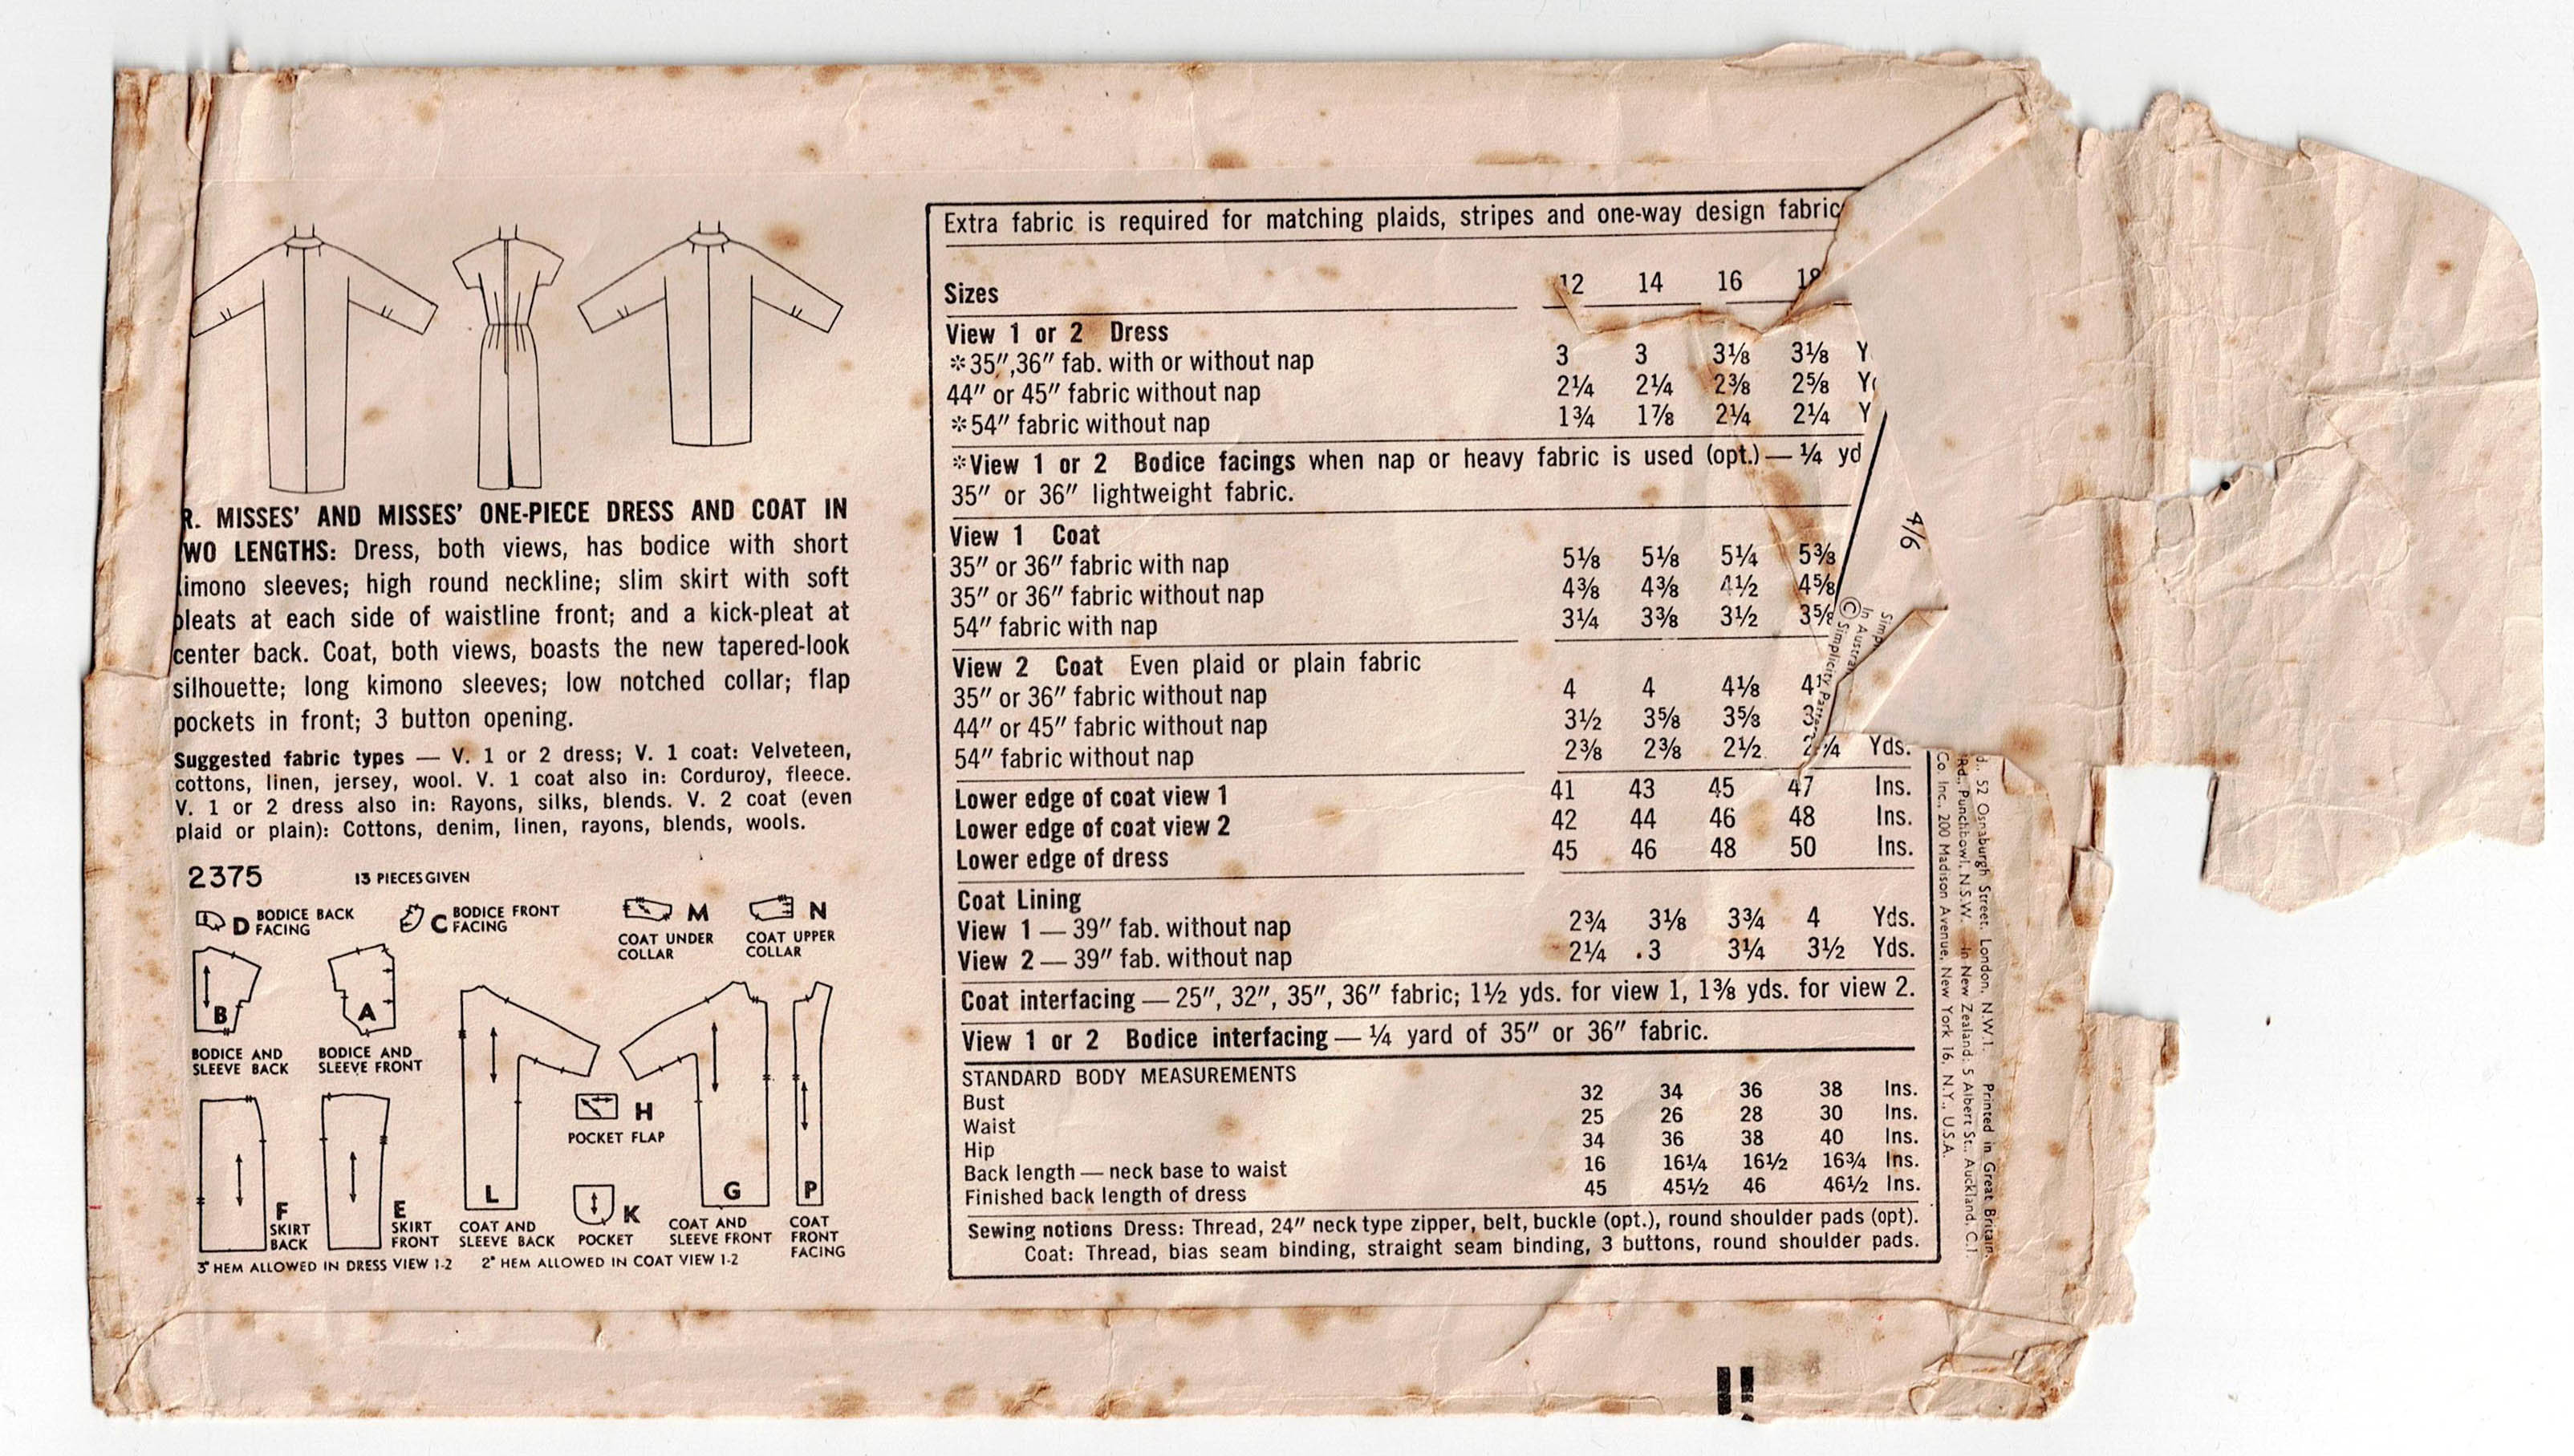 R. MISSES' AND MISSES' ONE-PIECE DRESS AND COAT IN
WO LENGTHS: Dress, both views, has bodice with short
imono sleeves; high round neckline; slim skirt with soft
pleats at each side of waistline front; and a kick-pleat at
center back. Coat, both views, boasts the new tapered-look
silhouette; long kimono sleeves; low notched collar; flap
pockets in front; 3 button opening.
Suggested fabric types — V. 1 or 2 dress; V. 1 coat: Velveteen,
cottons, linen, jersey, wool. V. 1 coat also in: Corduroy, fleece.
V. 1 or 2 dress also in: Rayons, silks, blends. V. 2 coat (even
plaid or plain): Cottons, denim, linen, rayons, blends, wools.
2375 13 PIECES GIVEN
D BODICE BACK FACING
C BODICE FRONT FACING
M COAT UNDER COLLAR
N COAT UPPER COLLAR
B BODICE AND SLEEVE BACK
A BODICE AND SLEEVE FRONT
F SKIRT BACK
E SKIRT FRONT
L COAT AND SLEEVE BACK
H POCKET FLAP
K POCKET
G COAT AND SLEEVE FRONT
P COAT FRONT FACING
3" HEM ALLOWED IN DRESS VIEW 1-2 2" HEM ALLOWED IN COAT VIEW 1-2
Extra fabric is required for matching plaids, stripes and one-way design fabric
Sizes 12 14 16 18
View 1 or 2 Dress
*35",36" fab. with or without nap 3 3 3⅛ 3⅛ Y
44" or 45" fabric without nap 2¼ 2¼ 2⅜ 2⅝ Y
*54" fabric without nap 1¾ 1⅞ 2¼ 2¼ Y
*View 1 or 2 Bodice facings when nap or heavy fabric is used (opt.) — ¼ yd
35" or 36" lightweight fabric.
View 1 Coat
35" or 36" fabric with nap 5⅛ 5⅛ 5¼ 5⅜
35" or 36" fabric without nap 4⅜ 4⅜ 4½ 4⅝
54" fabric with nap 3¼ 3⅜ 3½ 3⅝
View 2 Coat Even plaid or plain fabric
35" or 36" fabric without nap 4 4 4⅛
44" or 45" fabric without nap 3½ 3⅝ 3⅝
54" fabric without nap 2⅜ 2⅜ 2½ Yds.
Lower edge of coat view 1 41 43 45 47 Ins.
Lower edge of coat view 2 42 44 46 48 Ins.
Lower edge of dress 45 46 48 50 Ins.
Coat Lining
View 1 — 39" fab. without nap 2¾ 3⅛ 3¾ 4 Yds.
View 2 — 39" fab. without nap 2¼ 3 3¼ 3½ Yds.
Coat interfacing — 25", 32", 35", 36" fabric; 1½ yds. for view 1, 1⅜ yds. for view 2.
View 1 or 2 Bodice interfacing — ¼ yard of 35" or 36" fabric.
STANDARD BODY MEASUREMENTS
Bust 32 34 36 38 Ins.
Waist 25 26 28 30 Ins.
Hip 34 36 38 40 Ins.
Back length — neck base to waist 16 16¼ 16½ 16¾ Ins.
Finished back length of dress 45 45½ 46 46½ Ins.
Sewing notions Dress: Thread, 24" neck type zipper, belt, buckle (opt.), round shoulder pads (opt).
Coat: Thread, bias seam binding, straight seam binding, 3 buttons, round shoulder pads.
4/6
In Austra
© Simplicity
d., 52 Osnaburgh Street, London, N.W.1. Printed in Great Britain.
Rd., Punchbowl, N.S.W. In New Zealand: 5 Albert St., Auckland, C.1.
Co. Inc., 200 Madison Avenue, New York 16, N.Y., U.S.A.